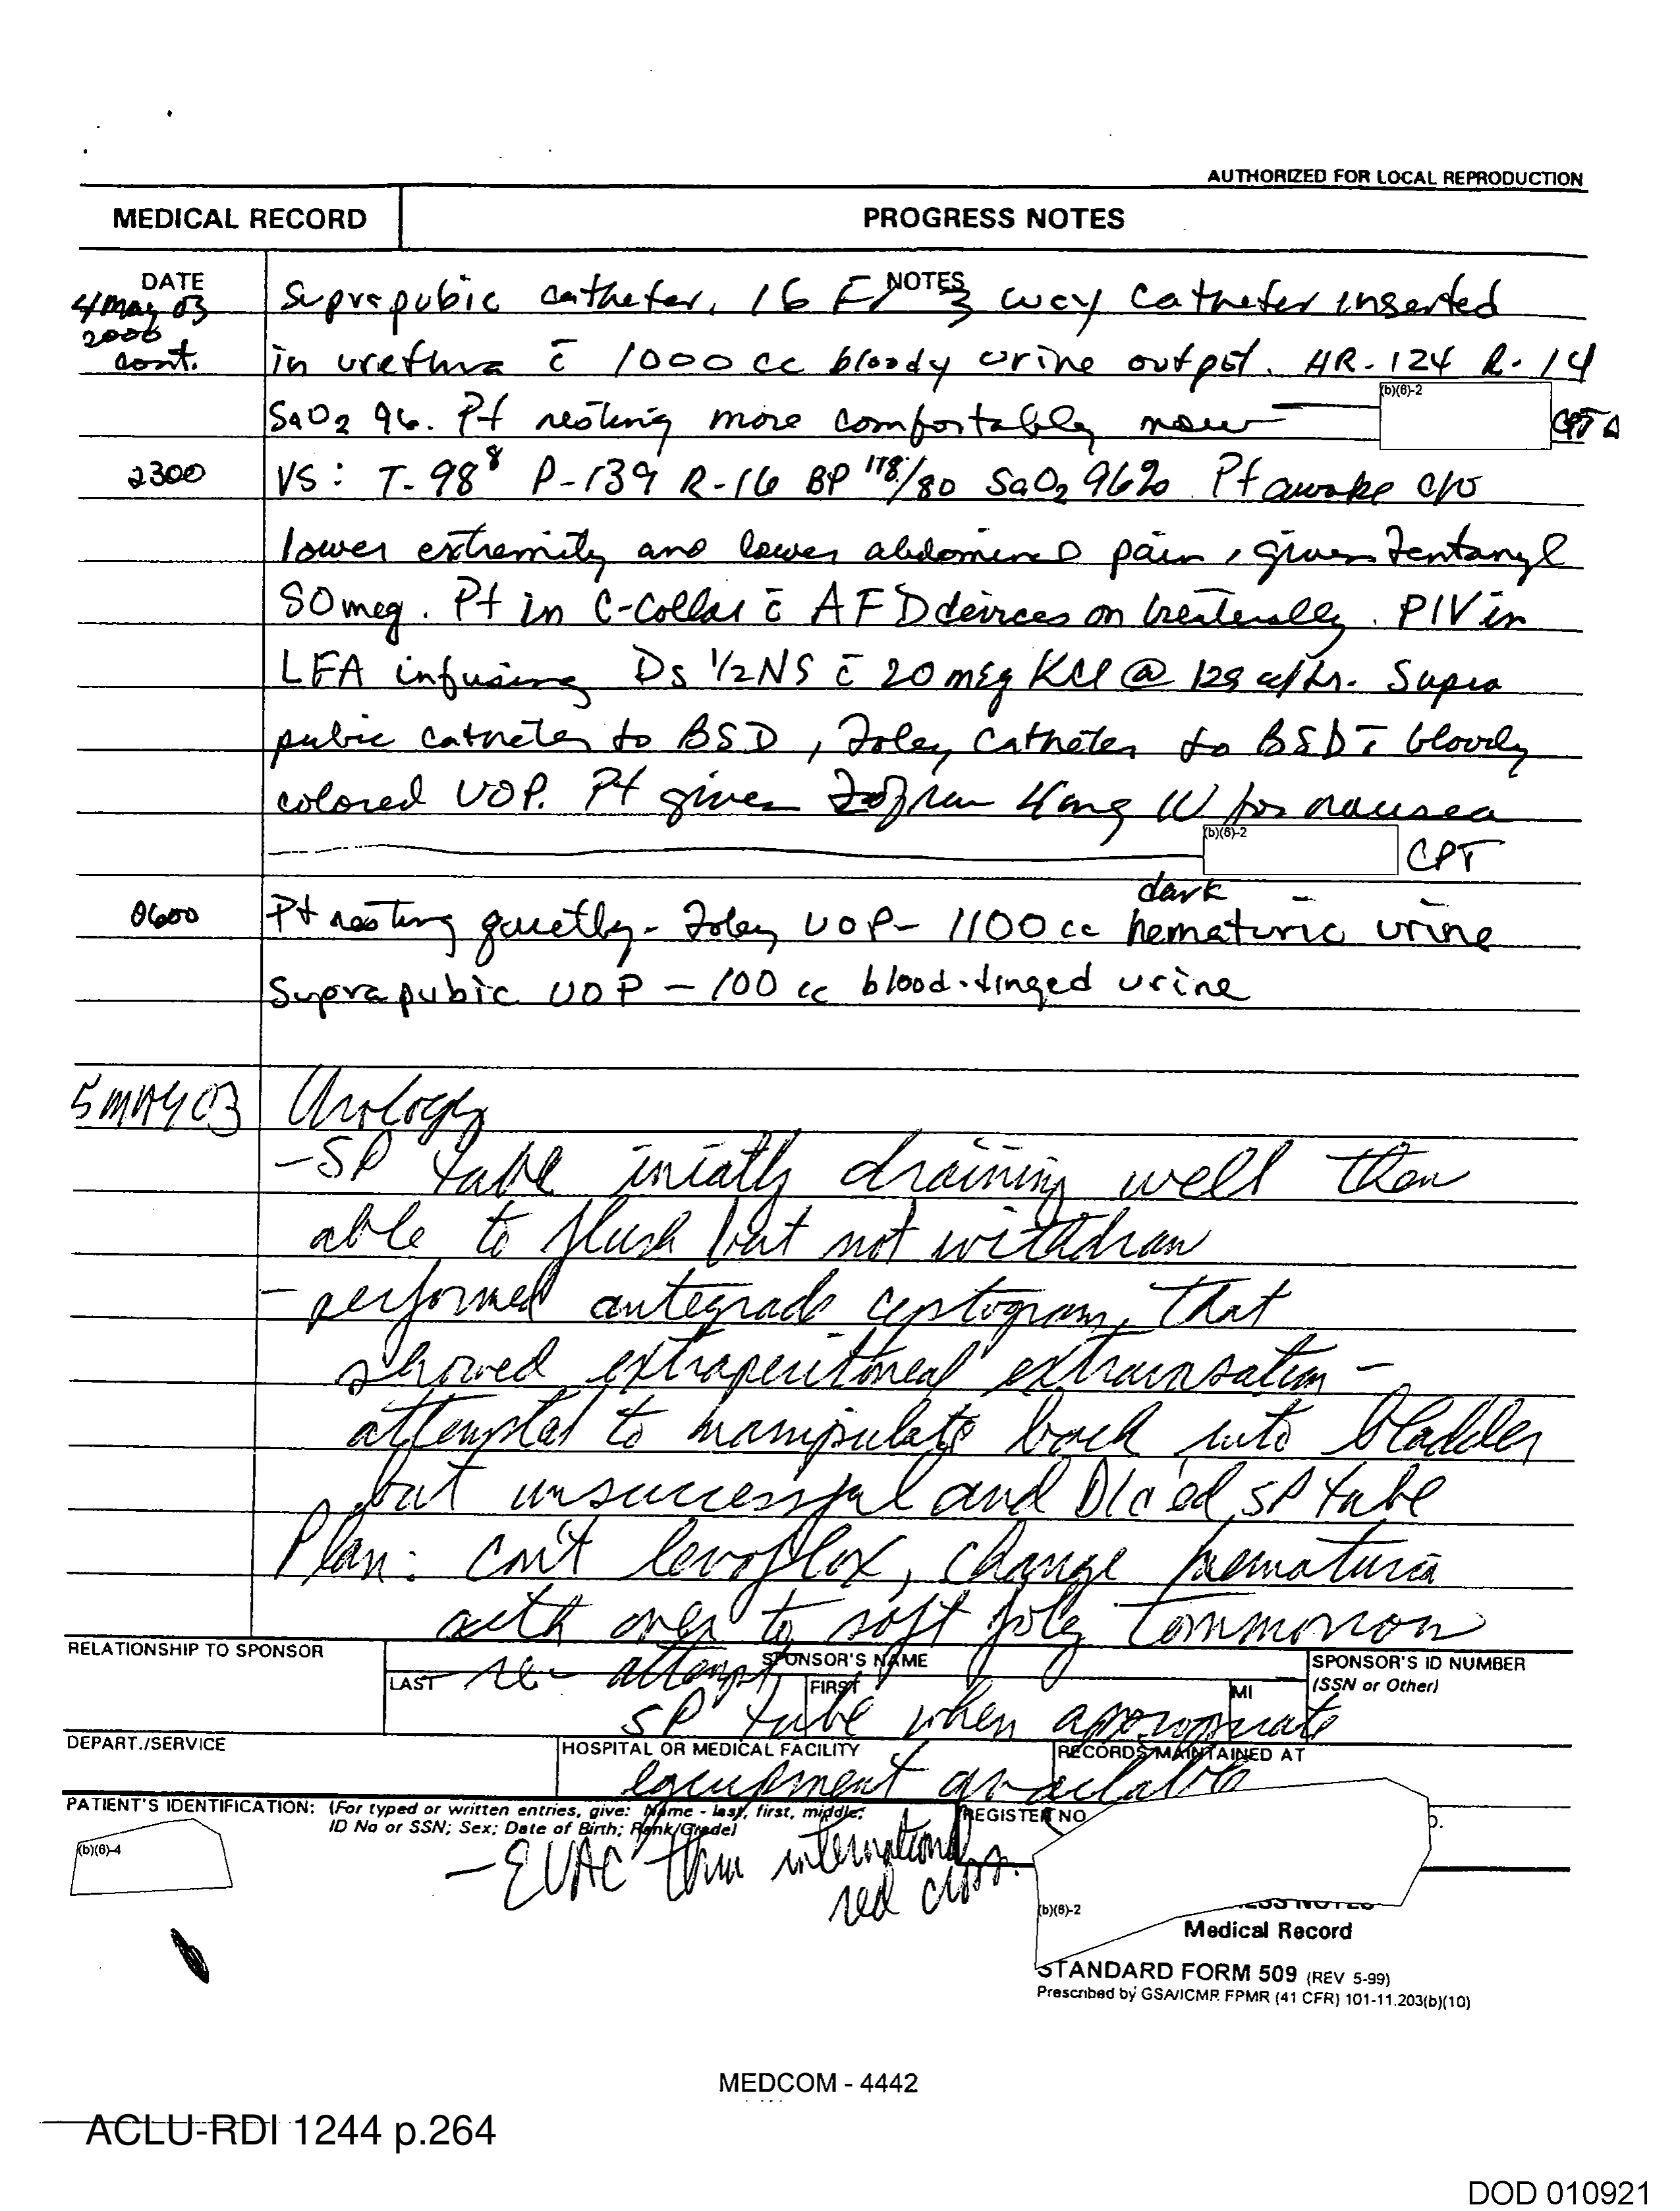 AUTHORIZED FOR LOCAL REPRODUCTION
MEDICAL RECORD PROGRESS NOTES
DATE NOTES
4 May 03 Suprapubic catheter, 16 Fr 3 way catheter inserted
2000
cont. in urethra c̄ 1000 cc bloody urine output. HR-124 R-14
(b)(6)-2
SaO2 96. Pt resting more comfortably now
2300 VS: T-98⁸ P-139 R-16 BP 178/80 SaO2 96% Pt awake c/o
lower extremity and lower abdominal pain, given Fentanyl
50 mcg. Pt in C-Collar c̄ AFD devices on bilaterally. PIV in
LFA infusing D5 1/2 NS c̄ 20 meq KCl @ 125 cc/hr. Supra
pubic catheter to BSD, Foley catheter to BSD c̄ bloody
colored UOP. Pt given Zofran 4 mg IV for nausea
(b)(6)-2
CPT
dark
0600 Pt resting quietly - Foley UOP - 1100 cc hematuric urine
Suprapubic UOP - 100 cc blood-tinged urine
5 MAY 03 Urology
- SP tube iniatly draining well then
able to flush but not withdraw
- performed antegrade cystogram that
showed extraperitoneal extravasation -
attempted to manipulate back into bladder
but unsuccessful and D/c'ed SP tube
Plan: con't levoflox, change hematuria
cath over to soft foley tommorow
RELATIONSHIP TO SPONSOR SPONSOR'S NAME SPONSOR'S ID NUMBER
LAST FIRST MI (SSN or Other)
re-attempt
SP tube when appropriate
DEPART./SERVICE HOSPITAL OR MEDICAL FACILITY RECORDS MAINTAINED AT
equipment available
PATIENT'S IDENTIFICATION: (For typed or written entries, give: Name - last, first, middle; REGISTER NO
ID No or SSN; Sex; Date of Birth; Rank/Grade)
(b)(6)-4
- EVAC thru international
red cross.
(b)(6)-2
Medical Record
STANDARD FORM 509 (REV 5-99)
Prescribed by GSA/ICMR FPMR (41 CFR) 101-11.203(b)(10)
MEDCOM - 4442
ACLU-RDI 1244 p.264
DOD 010921